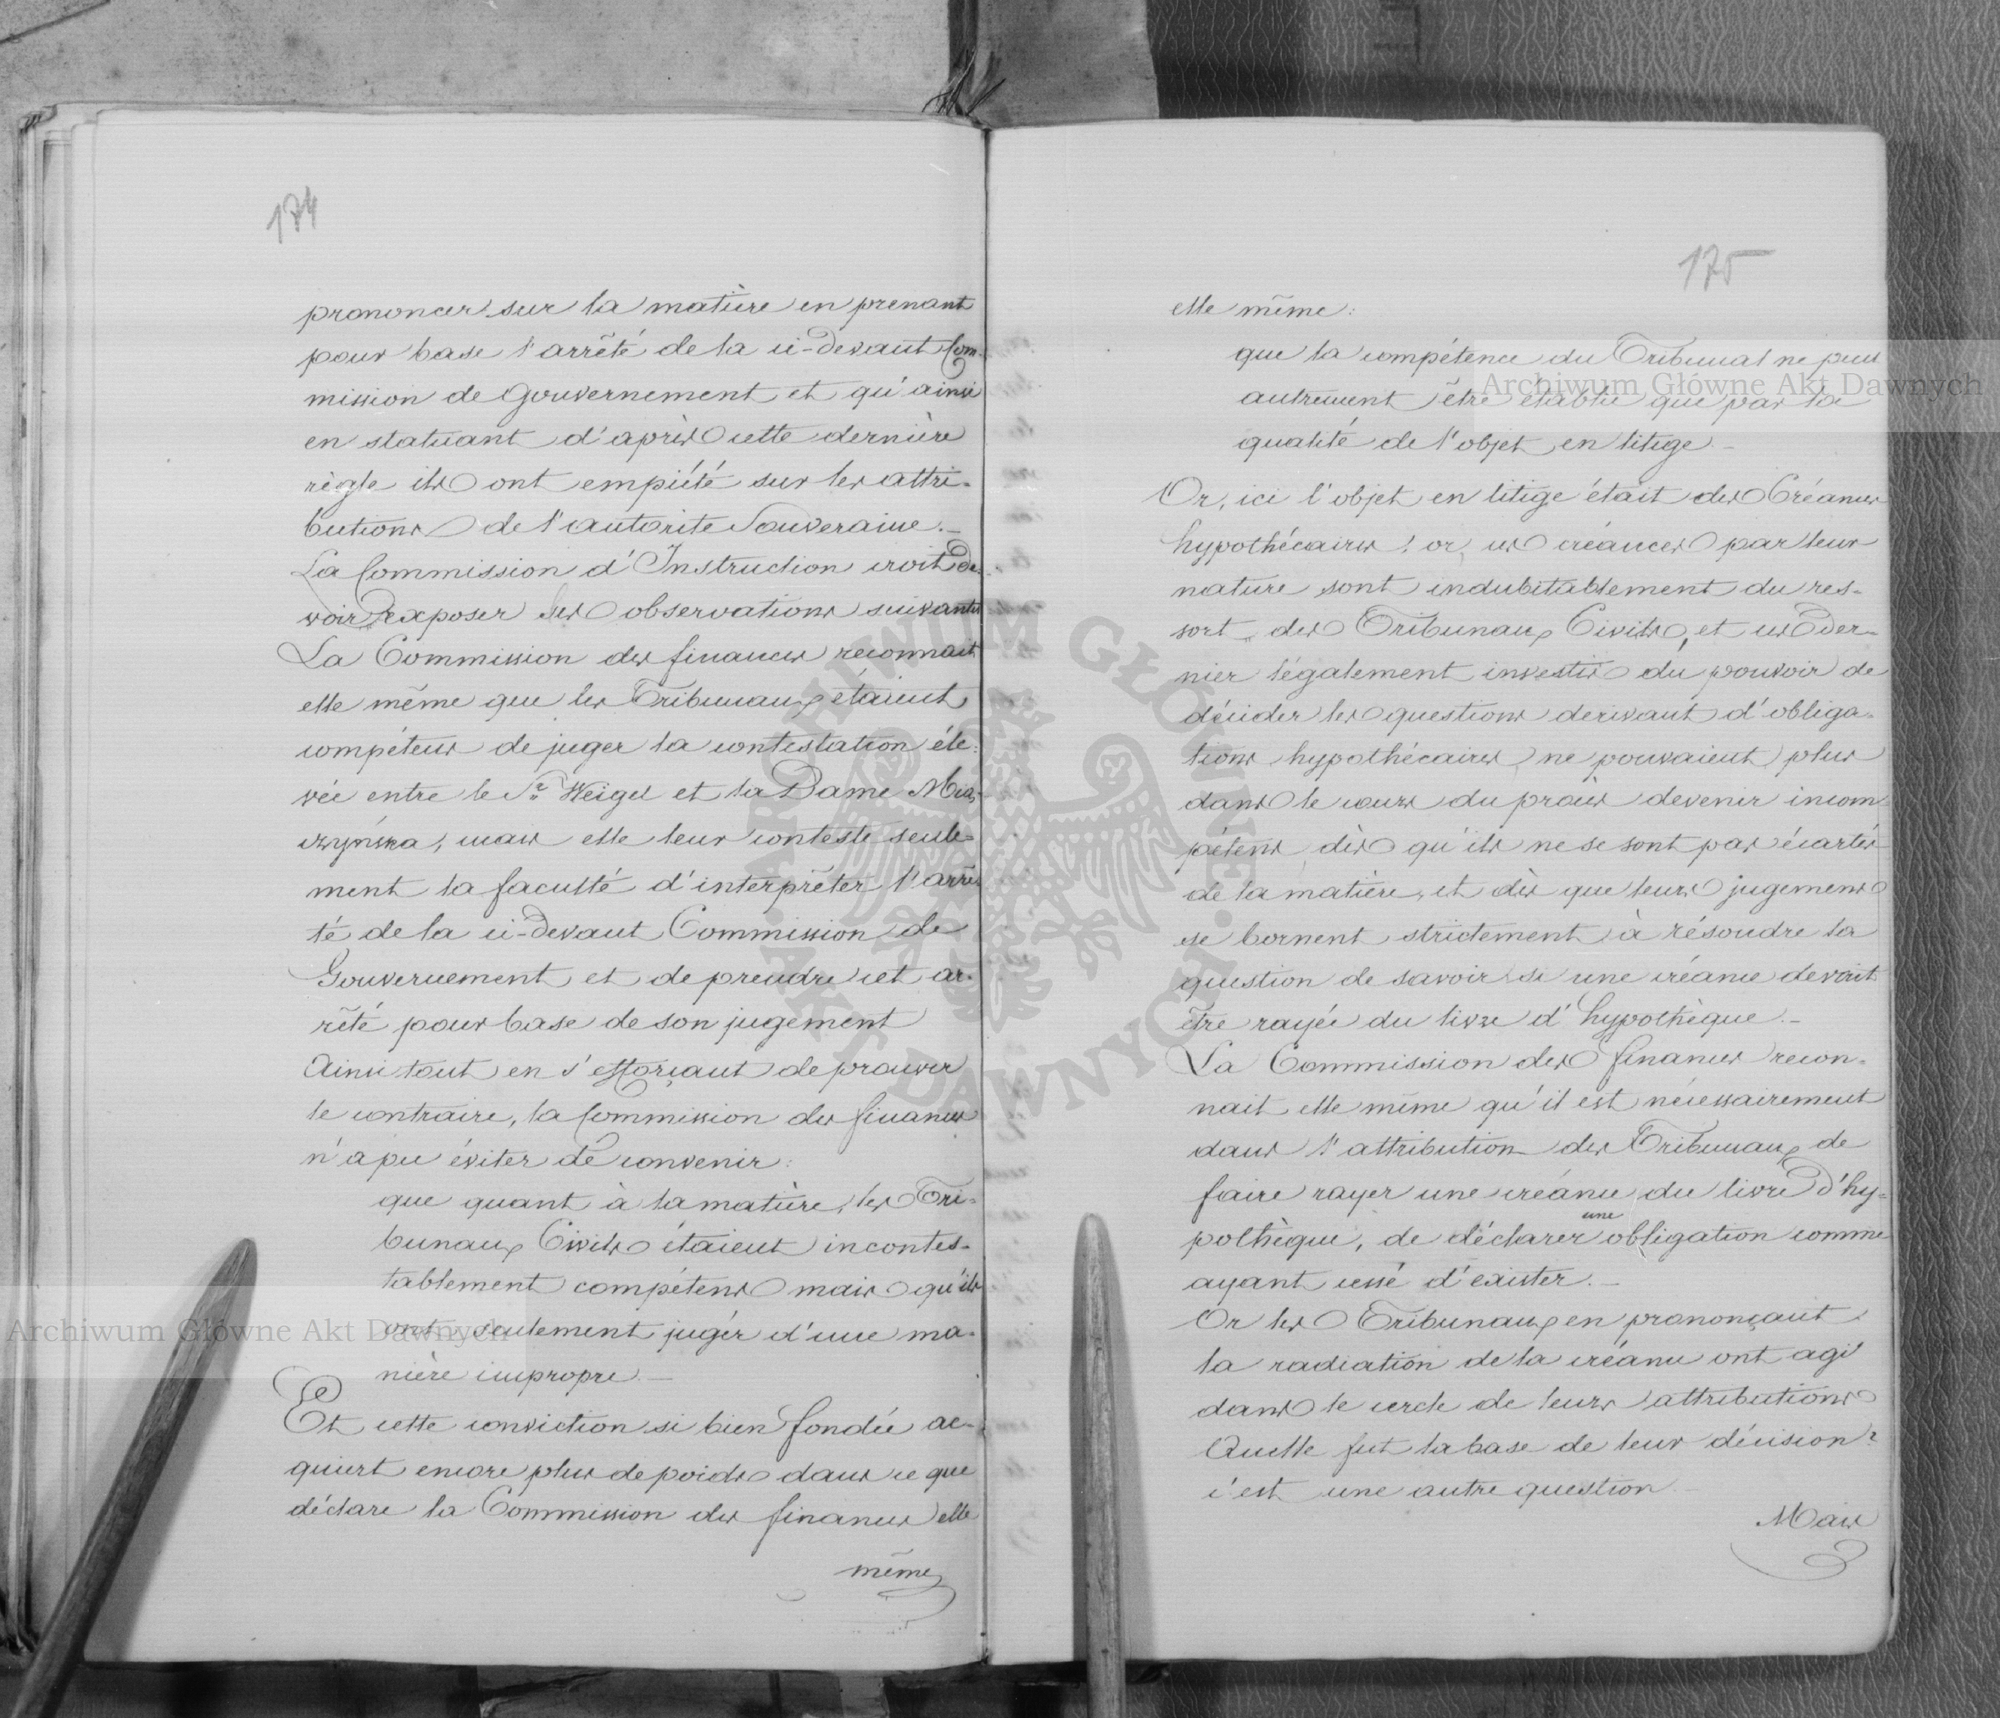 174
prononcer sur la matière en prenant
pour base l'arrêté de la ci-devant Com-
mission de Gouvernement et qu'ainsi
en statuant d'après cette dernière
règle ils ont empiété sur les attri-
butions de l'autorité Souveraine.-
La Commission d'Instruction croit de-
voir exposer ses observations suivantes
La Commission des finances reconnait
elle même que les Tribunaux étaient
compétens de juger la contestation éle-
vée entre le Sr Weigel et la Dame Mią-
czyńska, mais elle leur conteste seule-
ment la faculté d'interprêter l'arrê-
té de la ci-devant Commission de
Gouvernement et de prendre cet ar-
rêté pour base de son jugement
Ainsi tout en s'efforçant de prouver
le contraire, la Commission des finances
n'a pu éviter de convenir:
que quant à la matière, les Tri-
bunaux Civils étaient incontes-
tablement compétens mais qu'ils
ont seulement jugér d'une ma-
nière impropre.-
Et cette conviction si bien fondée ac-
quiert encore plus de poids dans ce que
déclare la Commission des finances elle
même
175
elle même:
que la compétence du Tribunal ne peut
autrement être établie que par la
qualité de l'objet en litige-
Or, ici l'objet en litige était des Créances
hypothécaires; or, ces créances par leur
nature sont indubitablement du res-
sort des Tribunaux Civils, et ces der-
nier légalement investis du pouvoir de
décider les questions derivant d'obliga-
tions hypothécaires ne pouvaient plus
dans le cours du procès devenir incom-
pétens dès qu'ils ne se sont pas écartés
de la matière, et dès que leurs jugemens
se bornent strictement à résoudre la
question de savoir si une créance devait
être rayée du livre d'hypothèque.-
La Commission des finances recon-
nait elle même qu'il est nécessairement
dans l'attribution des Tribunaux de
faire rayer une créance du livre d'hy-
pothèque, de déclarer une obligation comme
ayant cessé d'exister.-
Or les Tribunaux en prononçant
la radiation de la créance ont agi
dans le cercle de leurs attributions
Quelle fut la base de leur décision?
c'est une autre question-
Mais
Archiwum Główne Akt Dawnych
Archiwum Główne Akt Dawnych
ARCHIWUM GŁÓWNE AKT DAWNYCH